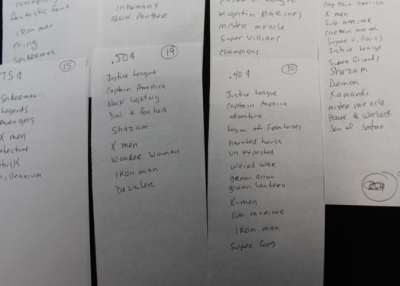 fantastic four
iron man
Thing
Spiderman
inhumans
black Panther
Fightin Marines
mister miracle
Super Villians
Champions
Captain America
X men
Sub mariner
Captain marvel
Super Villains
Justice League
Super friends
Shazam
Demon
Kamandi
mister miracle
Power & Warlock
Son of Satan
75¢
15
Spiderman
Legends
Avengers
X men
Detective
Hulk
millennium
.50¢
19
Justice League
Captain America
black Lightning
Dial a for hero
Shazam
X men
Wonder Woman
IRON man
Dazzler
.40¢
30
Justice League
Captain America
adventure
Legion of Superheroes
haunted house
unexpected
weird war
green arrow
green lantern
X-men
Sub mariner
IRON man
Super Cops